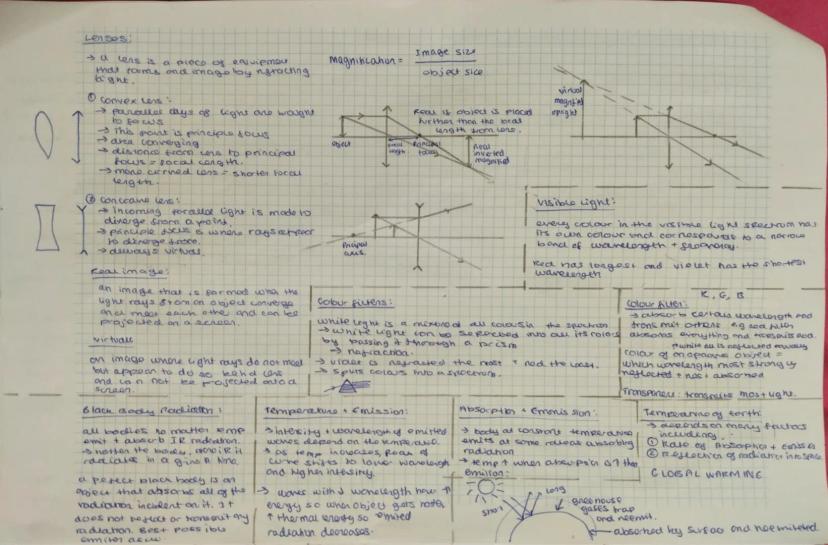 Lenses:
→ a lens is a piece of equipment
that forms and image by refracting
light.
① Convex lens:
→ parallel rays of light are brought
to focus
→ This point is principle focus
→ area converging
→ distance from lens to principal
focus = focal length.
→ more curved lens = shorter focal
length.
② Concave lens:
→ Incoming parallel light is made to
diverge from a point.
→ principle focus is where rays appear
to diverge from.
→ always virtual.
Real image:
an image that is formed when the
light rays from an object converge
and meet each other and can be
projected on a screen.
Virtual:
an image where light rays do not meet
but appear to do so behind lens
and can not be projected onto a
screen.
Magnification = Image size
object size
object
focal length
Principal focus
Real if object is placed
further than the focal
length from lens.
real
inverted
magnified
virtual
magnified
upright
Principal
axis.
Visible light:
every colour in the visible light spectrum has
its own colour and corresponds to a narrow
band of wavelength + frequency.
Red has longest and violet has the shortest
wavelength
Colour filters:
white light is a mixture of all colours in the spectrum
→ white light can be separated into all its colours
by passing it through a prism
→ refraction.
→ violet is refracted the most + red the least.
→ splits colours into a spectrum.
R, G, B
Colour filter:
→ absorb certain wavelength and
transmit others. e.g red filter
absorbs everything
colour of an opaque object =
which wavelength most strongly
reflected + not absorbed
Transparent: transmits most light.
Black Body Radiation:
all bodies no matter temp
emit + absorb IR radiation.
→ hotter the body, more IR it
radiates in a given time.
a perfect black body is an
object that absorbs all of the
radiation incident on it. It
does not reflect or transmit any
radiation. Best possible
emitter
Temperature + Emission:
→ intensity + wavelength of emitted
waves depend on the temp
→ as temp increases, peak of
curve shifts to lower wavelength
and higher intensity.
→ waves with ↓ wavelength have ↑
energy so when object gets hotter
↑ thermal energy so emitted
radiation decreases.
Absorption + Emission:
→ body at constant temperature
emits at same rate as absorbing
radiation
→ temp ↑ when absorption is ↑ than
emission:
short
long
greenhouse
gases trap
and reemit.
absorbed by surface and reemitted.
Temperature of Earth:
→ depends on many factors
including:
① Rate of Absorption + emission
② Reflection of radiation into space
GLOBAL WARMING